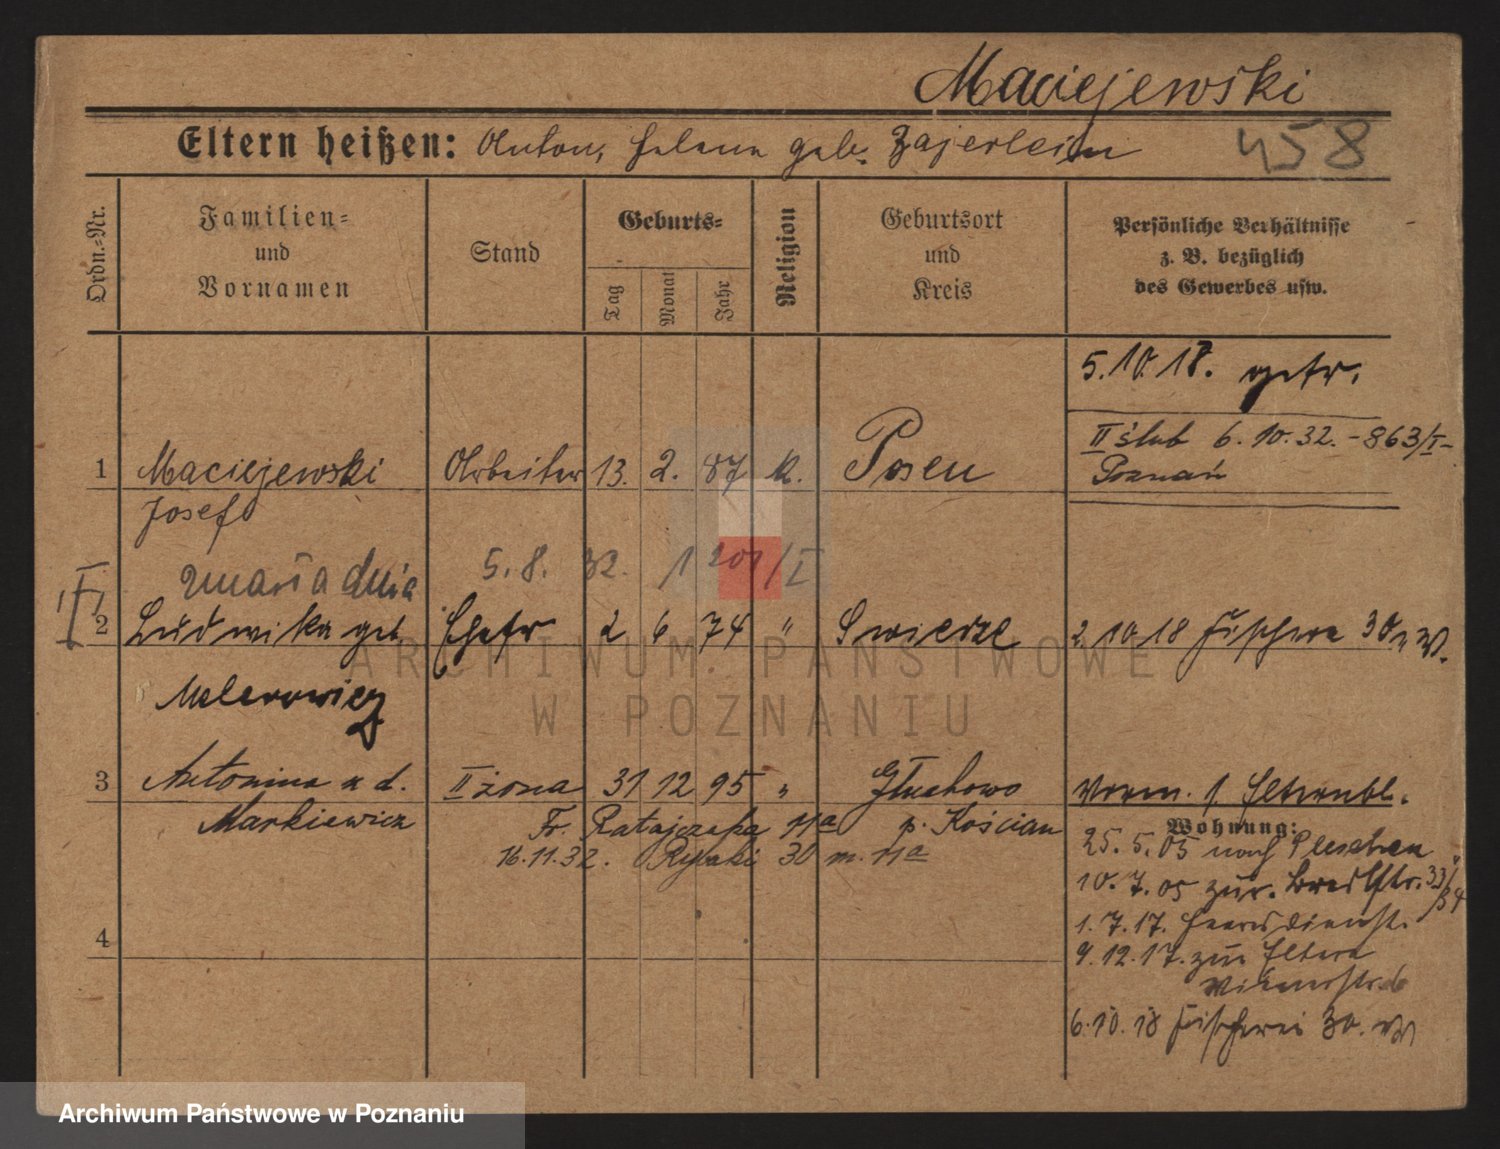 Maciejewski
Eltern heißen: Anton, Helena geb. Zajerlein
458
Ordn.-Nr.
Familien-
und
Vornamen
Stand
Geburts-
Tag
Monat
Jahr
Religion
Geburtsort
und
Kreis
Persönliche Verhältnisse
z. B. bezüglich
des Gewerbes usw.
5.10.18. getr.
II ślub 6.10.32. - 863/I -
Poznań
1 Maciejewski Arbeiter 13. 2. 87 k. Posen
Josef
zmarła dnia 5.8.32. 1201/I
I
2 Ludwika geb. Ehefr 2 6 74 " Swierze 2.10.18 Fischerei 30 W.
Melerowicz
3 Antonina z d. II żona 31 12 95 " Głuchowo Vorm. 1 Elternbl.
Markiewicz Fr. Ratajczaka 11a p. Kościan
16.11.32. Rybaki 30 m. 11a
4
Wohnung:
25.5.05 nach Pleschen
10.7.05 zur. 33/34
1.7.17. Heeresdienst.
9.12.17. zu Eltern
6
6.10.18 Fischerei 30. W
ARCHIWUM PAŃSTWOWE
W POZNANIU
Archiwum Państwowe w Poznaniu